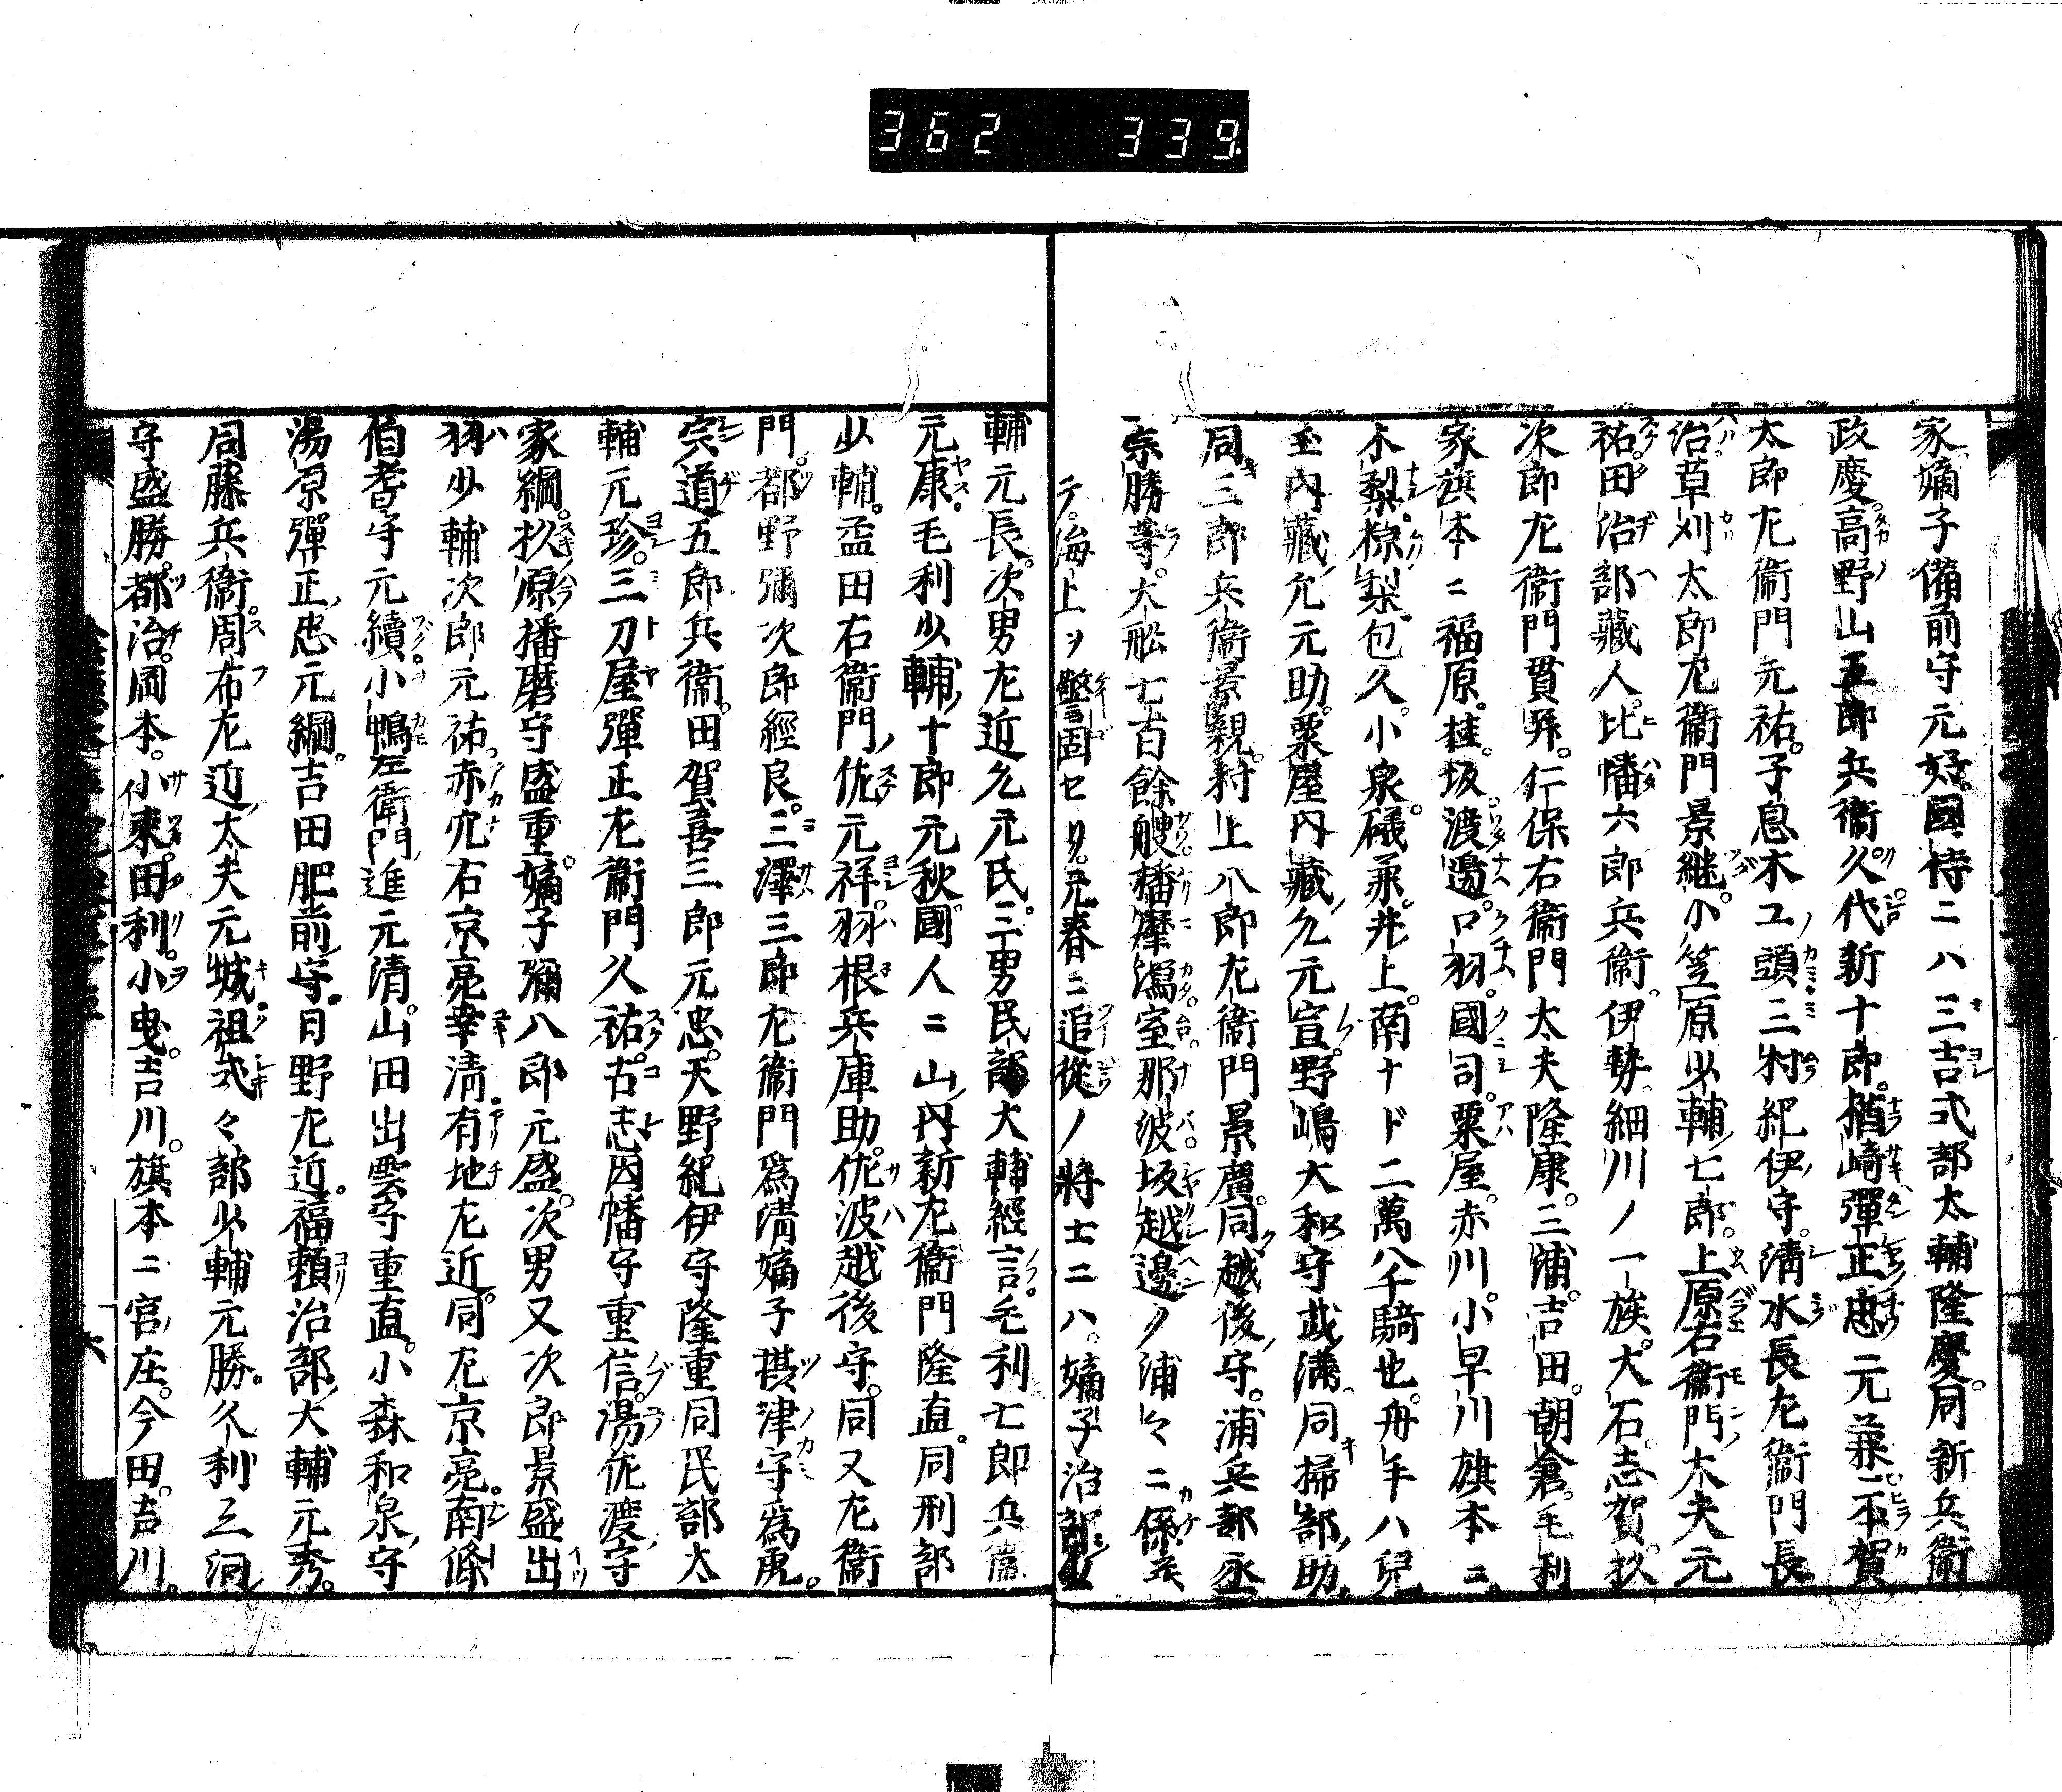 362 339
家嫡子備前守元好國侍ニハ三吉式部太輔隆慶。同新兵衛
政慶。高野山五郎兵衛久代新十郎。楢崎彈正忠元兼二本賀
太郎左衛門元祐。子息木工頭三村紀伊守。清水長左衛門長
治。草刈太郎左衛門景継。小笠原少輔七郎。上原右衛門大夫元
祐。田治部藏人。比幡六郎兵衛。伊勢。細川ノ一族。大石。志賀。杉
次郎左衛門貫昇。仁保右衛門太夫隆康。三浦。吉田。朝倉。毛利
家旗本ニ福原。桂。坂。渡邉。口羽。國司。粟屋。赤川。小早川旗本ニ。
木梨。椋梨。包久。小泉。礒兼。井上。南ナド二萬八千騎也。舟手ハ兒
玉内藏允元助。粟屋内藏允元宣。野嶋大和守武満。同掃部助。
同三郎兵衞景親。村上八郎左衛門景廣。同越後守。浦兵部丞
宗勝等。大舩七百餘艘播摩潟室那波坂越邊ノ浦々ニ係系
テ。海上ヲ警固セリ。元春ニ追從ノ將士ニハ。嫡子治部少
輔元長。次男左近允元氏。三男民部大輔經言。毛利七郎兵衛
元康。毛利少輔十郎元秋。國人ニ山内新左衛門隆直。同刑部
少輔。益田右衞門佐元祥。羽根兵庫助。佐波越後守。同又左衛
門都野彌次郎經良。三澤三郎左衛門爲清嫡子摂津守爲虎。
宗道五郎兵衞。田賀喜三郎元忠。天野紀伊守隆重同民部太
輔元珍。三刀屋彈正左衞門久祐。古志因幡守重信。湯佐渡守
家綱。杉原播磨守盛重。嫡子彌八郎元盛。次男又次郎景盛出
羽少輔次郎元祐。赤穴右京亮幸清。有地左近。同左京亮。南條
伯耆守元續。小鴨左衞門進元清。山田出雲守重直。小森和泉守
湯原彈正忠元綱。吉田肥前守。日野左近。福頼治部大輔元秀。
同藤兵衞。周布左近太夫元城。祖式々部少輔元勝。久利三河
守盛勝。都治。岡本。小東。田利。小曳。吉川。旗本ニ宮庄。今田。吉川。
六